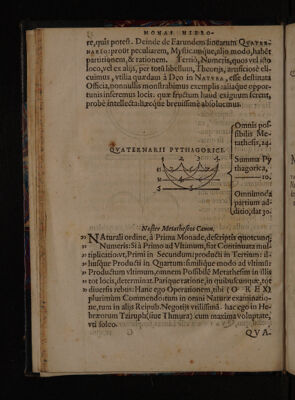 MONAS HIERO-
re, quis potest. Deinde de Earundem stigmarum QVATER-
NARIO: prout peculiarem, Mysticamque, alio modo, habet
partitionem, & rationem. Tertiò, Numeris, quos vel isto
loco, vel ex alijs, per totū libellum, Theorijs, artificiosè eli-
cuimus, vtilia quædam à Deo in NATVRA, esse destinata
Officia, nonnullis monstrabimus exemplis: aliaque oppor-
tunis inseremus locis. quæ fructum haud exiguum ferent,
probè intellecta: hæcque breuissimè absoluimus.
QVATERNARII PYTHAGORICI.
1 2 3 4
Omnis pos-
sibilis Me-
tathesis, 24.
Summa Py
thagorica,
10.
Omnimoda
partium ad-
ditio, dat 30
Noster Metatheseos Canon.
NAturali ordine, à Prima Monade, descriptis quotcunq;
Numeris: Si à Primo ad Vltimum, fiat Continua mul-
tiplicatio: vt, Primi in Secundum: producti in Tertium: il-
liusque Producti in Quartum: similique modo ad vltimū:
Productum vltimum, omnem Possibilē Metathesim in illis
tot locis, determinat. Pariq; ratione, in quibuscunque, tot
diuersis rebus: Hanc ego Operationem, tibi (O REX)
plurimùm Commendo: tum in omni Naturæ examinatio-
ne, tum in alijs Reipub. Negotijs vtilissimā. hac ego in He-
bræorum Tziruph (siue Thmura) cum maxima Voluptate,
vti soleo.
QVA-